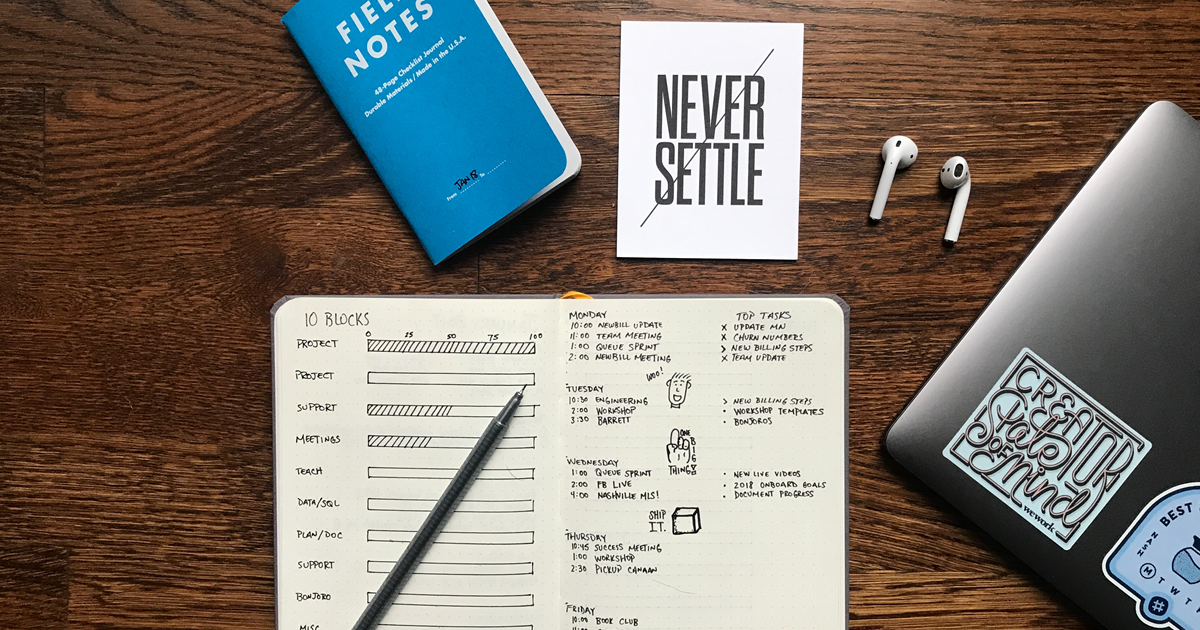 FIELD
NOTES
48-Page Checklist Journal
Durable Materials / Made in the U.S.A.
JAN 18
From to
NEVER
SETTLE
10 BLOCKS
0 25 50 75 100
PROJECT
PROJECT
SUPPORT
MEETINGS
TEACH
DATA/SQL
PLAN/DOC
SUPPORT
BONJORO
MISC
MONDAY
10:00 NEWBILL UPDATE
11:00 TEAM MEETING
1:00 QUEUE SPRINT
2:00 NEWBILL MEETING
TOP TASKS
X UPDATE MN
X CHURN NUMBERS
> NEW BILLING STEPS
X TEAM UPDATE
WOO!
TUESDAY
10:30 ENGINEERING
2:00 WORKSHOP
3:30 BARRETT
> NEW BILLING STEPS
• WORKSHOP TEMPLATES
• BONJOROS
ONE
BIG
THING
WEDNESDAY
1:00 QUEUE SPRINT
2:00 FB LIVE
4:00 NASHVILLE MLS!
• NEW LIVE VIDEOS
• 2018 ONBOARD GOALS
• DOCUMENT PROGRESS
SHIP
IT.
THURSDAY
10:45 SUCCESS MEETING
1:00 WORKSHOP
2:30 PICKUP CANAAN
FRIDAY
10:00 BOOK CLUB
CREATOR
State
of
Mind
wework
BEST
NASH
M T W T
#